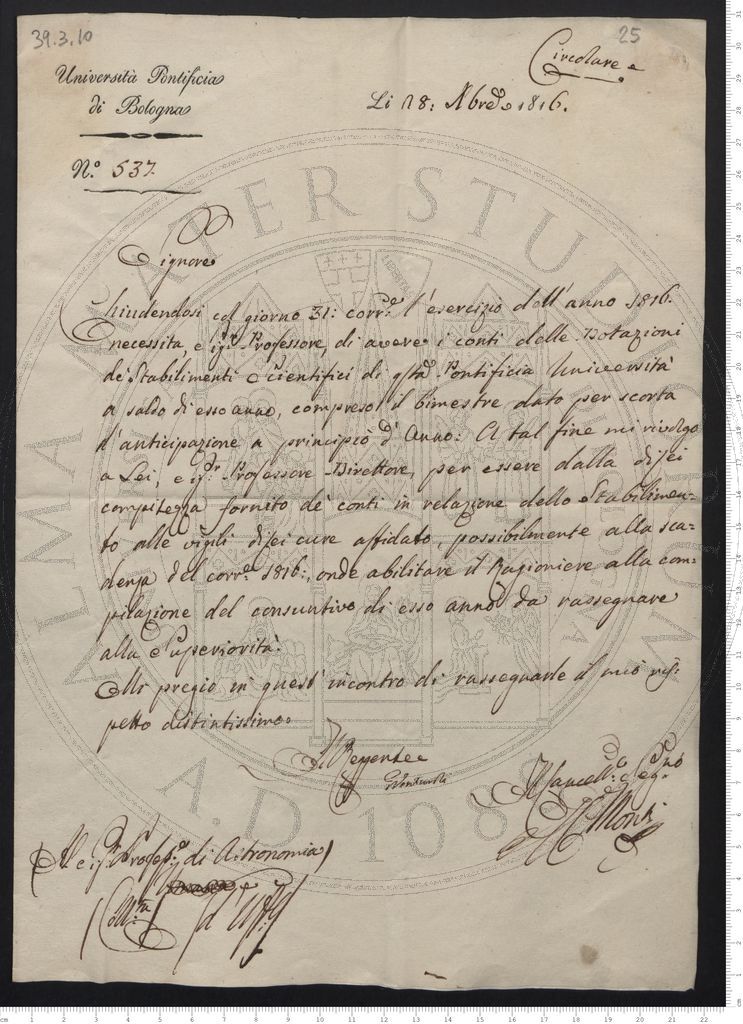 39.3.10
25
Circolare
Università Pontificia
di Bologna
Li 18: Xbre 1816.
N.º 537.
Signore
Chiudendosi col giorno 31: corr.e l'esercizio dell'anno 1816.
necessita, Sig.r Professore, di avere i conti delle Dotazioni
de' Stabilimenti Scientifici di q.ta Pontificia Università
a saldo di esso anno, compreso il bimestre dato per scorta
d'anticipazione a principio d'Anno: A tal fine mi rivolgo
a Lei, Sig.r Professore Direttore, per essere dalla di Lei
compitezza fornito de' conti in relazione dello Stabilimen-
to alle vigili di Lei cure affidato, possibilmente alla sca-
denza del corr.e 1816:, onde abilitare il Ragioniere alla com-
pilazione del consuntivo di esso anno da rassegnare
alla Superiorità.
Mi pregio in quest'incontro di rassegnarle il mio ris-
petto distintissimo.
Il Reggente
Il Cancell.e
Monti
Al Sig.r Profess.e di Astronomia
ALMA MATER STUDIORUM
A.D. 1088
LIBERTAS